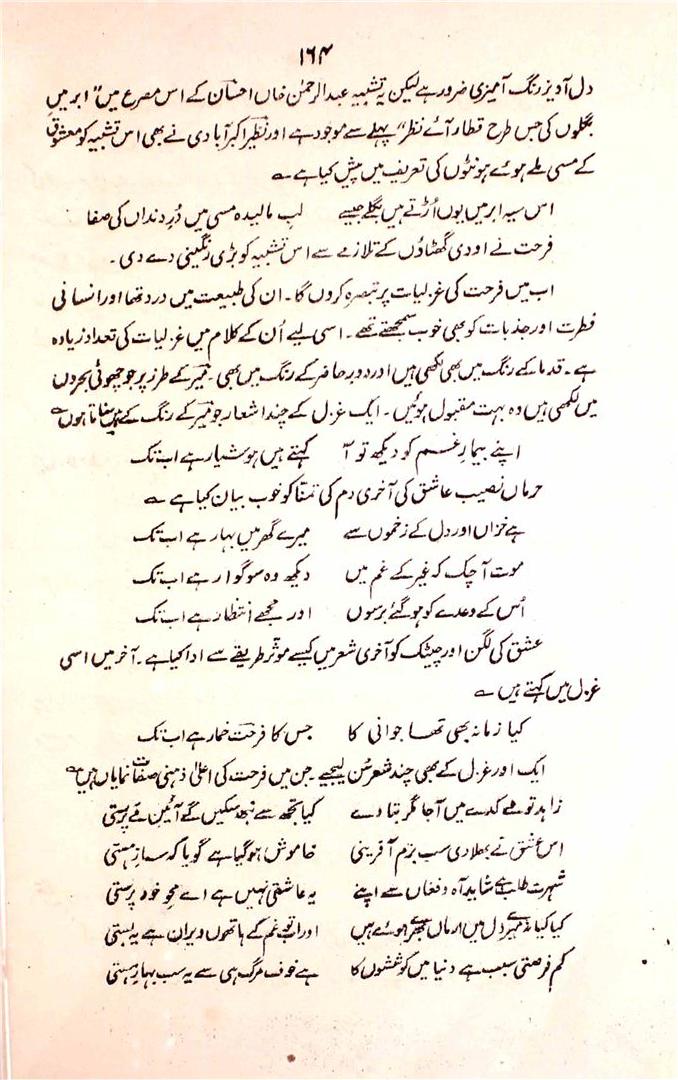 ۱۶۴
دل آویز رنگ آمیزی ضرور ہے لیکن یہ تشبیہ عبدالرحمٰن خاں احسانؔ کے اس مصرع میں " ابر میں
بگلوں کی جس طرح قطار آئے نظر" پہلے سے موجود ہے اور نظیرؔ اکبر آبادی نے بھی اس تشبیہ کو معشوق
کے مسی ملے ہوئے ہونٹوں کی تعریف میں پیش کیا ہے ؎
اس سیہ ابر میں یوں اُڑتے ہیں بگلے جیسے لبِ مالیدہ مسی میں دُرِ دنداں کی صفا
فرحت نے اودی گھٹاؤں کے تلازمے سے اس تشبیہ کو بڑی رنگینی دے دی۔
اب میں فرحت کی غزلیات پر تبصرہ کروں گا۔ ان کی طبیعت میں درد تھا اور انسانی
فطرت اور جذبات کو بھی خوب سمجھتے تھے۔ اسی لیے اُن کے کلام میں غزلیات کی تعداد زیادہ
ہے۔ قدما کے رنگ میں بھی لکھی ہیں اور دورِ حاضر کے رنگ میں بھی۔ میرؔ کے طرز پر جو چھوٹی بحروں
میں لکھی ہیں وہ بہت مقبول ہوئیں۔ ایک غزل کے چند اشعار جو میرؔ کے رنگ کے ہیں سناتا ہوں ؎
اپنے بیمارِ غم کو دیکھ تو آ کہتے ہیں ہوشیار ہے اب تک
حرماں نصیب عاشق کی آخری دم کی تمنّا کو خوب بیان کیا ہے ؎
ہے خزاں اور دل کے زخموں سے میرے گھر میں بہار ہے اب تک
موت آ چک کہ غیر کے غم میں دیکھ وہ سوگوار ہے اب تک
اُس کے وعدے کو ہو گئے برسوں اور مجھے انتظار ہے اب تک
عشق کی لگن اور چیٹک کو آخری شعر میں کیسے موثر طریقے سے ادا کیا ہے۔ آخر میں اسی
غزل میں کہتے ہیں ؎
کیا زمانہ بھی تھا جوانی کا جس کا فرحتؔ خمار ہے اب تک
ایک اور غزل کے بھی چند شعر سُن لیجیے۔ جن میں فرحت کی اعلیٰ ذہنی صفات نمایاں ہیں ؎
زاہد تو مے کدے میں آ جا مگر بتا دے کیا تجھ سے نبھ سکیں گے آئینِ مے پرستی
اس عشق نے بھلا دی سب بزم آفرینی خاموش ہو گیا ہے گویا کہ سازِ ہستی
شہرت طلب ہے شاید آہ و فغاں سے اپنے یہ عاشقی نہیں ہے اے محوِ خود پرستی
کیا کیا مرے دل میں ارماں بھرے ہوئے ہیں اور اب تو غم کے ہاتھوں ویران ہے یہ بستی
کم فرصتی سبب ہے دنیا میں کوششوں کا ہے خوفِ مرگ ہی سے یہ سب بہارِ ہستی